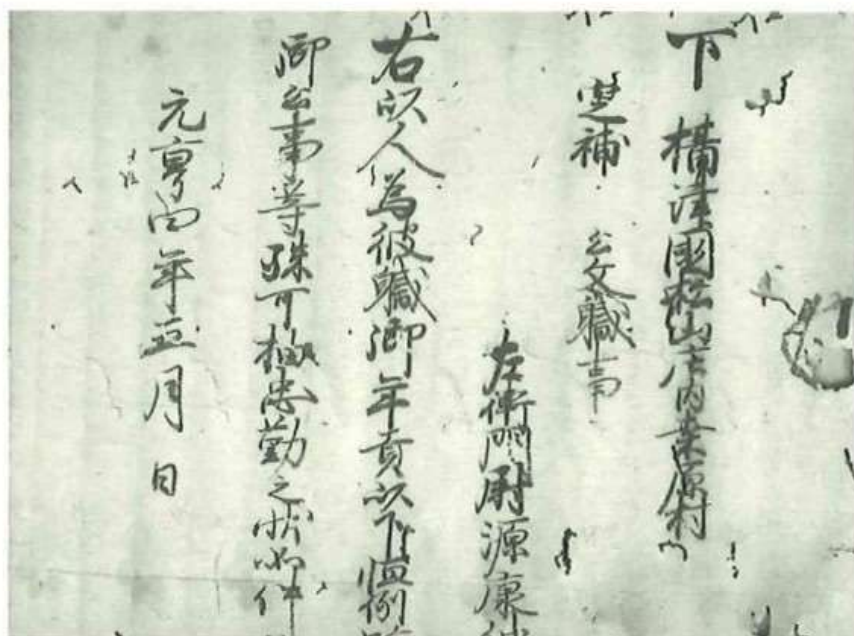 下 摂津國松山庄内桑原村
定補 公文職事
左衛門尉源康
右以人為彼職御年貢以下恒例
御公事等殊可抽忠勤之状如件
元亨四年五月 日